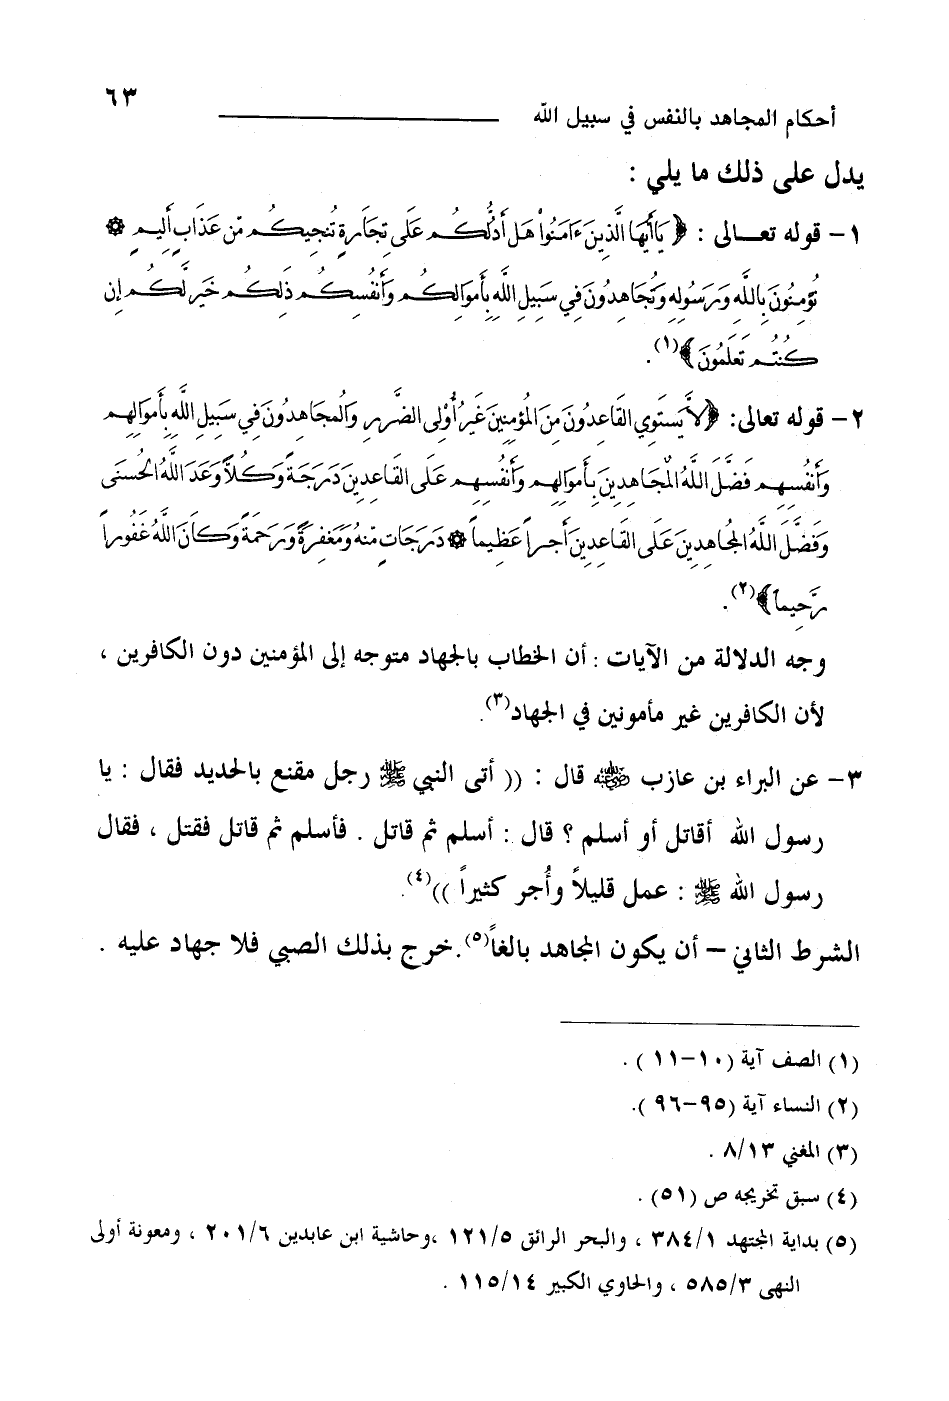 ٦٣
أحكام المجاهد بالنفس في سبيل الله
يدل على ذلك ما يلي :
١- قوله تعالى : ﴿ يَاأَيُّهَا الَّذِينَ ءَامَنُواْ هَلْ أَدُلُّكُمْ عَلَى تِجَارَةٍ تُنجِيكُم مِّنْ عَذَابٍ أَلِيمٍ ۞
تُؤْمِنُونَ بِاللَّهِ وَرَسُولِهِ وَتُجَاهِدُونَ فِي سَبِيلِ اللَّهِ بِأَمْوَالِكُمْ وَأَنفُسِكُمْ ذَلِكُمْ خَيْرٌ لَّكُمْ إِن
كُنتُمْ تَعْلَمُونَ ﴾(١).
٢- قوله تعالى: ﴿ لاَّ يَسْتَوِي القَاعِدُونَ مِنَ المُؤْمِنِينَ غَيْرُ أُوْلِى الضَّرَرِ وَالْمُجَاهِدُونَ فِي سَبِيلِ اللَّهِ بِأَمْوَالِهِمْ
وَأَنفُسِهِمْ فَضَّلَ اللَّهُ الْمُجَاهِدِينَ بِأَمْوَالِهِمْ وَأَنفُسِهِمْ عَلَى القَاعِدِينَ دَرَجَةً وَكُلاًّ وَعَدَ اللَّهُ الحُسْنَى
وَفَضَّلَ اللَّهُ الْمُجَاهِدِينَ عَلَى القَاعِدِينَ أَجْراً عَظِيماً ۞ دَرَجَاتٍ مِّنْهُ وَمَغْفِرَةً وَرَحْمَةً وَكَانَ اللَّهُ غَفُوراً
رَّحِيماً ﴾(٢).
وجه الدلالة من الآيات : أن الخطاب بالجهاد متوجه إلى المؤمنين دون الكافرين ،
لأن الكافرين غير مأمونين في الجهاد(٣).
٣- عن البراء بن عازب رضي الله عنه قال : (( أتى النبي ﷺ رجل مقنع بالحديد فقال : يا
رسول الله أقاتل أو أسلم ؟ قال : أسلم ثم قاتل . فأسلم ثم قاتل فقتل ، فقال
رسول الله ﷺ : عمل قليلاً وأُجر كثيراً ))(٤).
الشرط الثاني – أن يكون المجاهد بالغاً(٥). خرج بذلك الصبي فلا جهاد عليه .
(١) الصف آية (١٠-١١ ) .
(٢) النساء آية (٩٥-٩٦ ).
(٣) المغني ٨/١٣ .
(٤) سبق تخريجه ص (٥١) .
(٥) بداية المجتهد ٣٨٤/١ ، والبحر الرائق ١٢١/٥ ،وحاشية ابن عابدين ٢٠١/٦ ، ومعونة أولى
النهى ٥٨٥/٣ ، والحاوي الكبير ١١٥/١٤ .